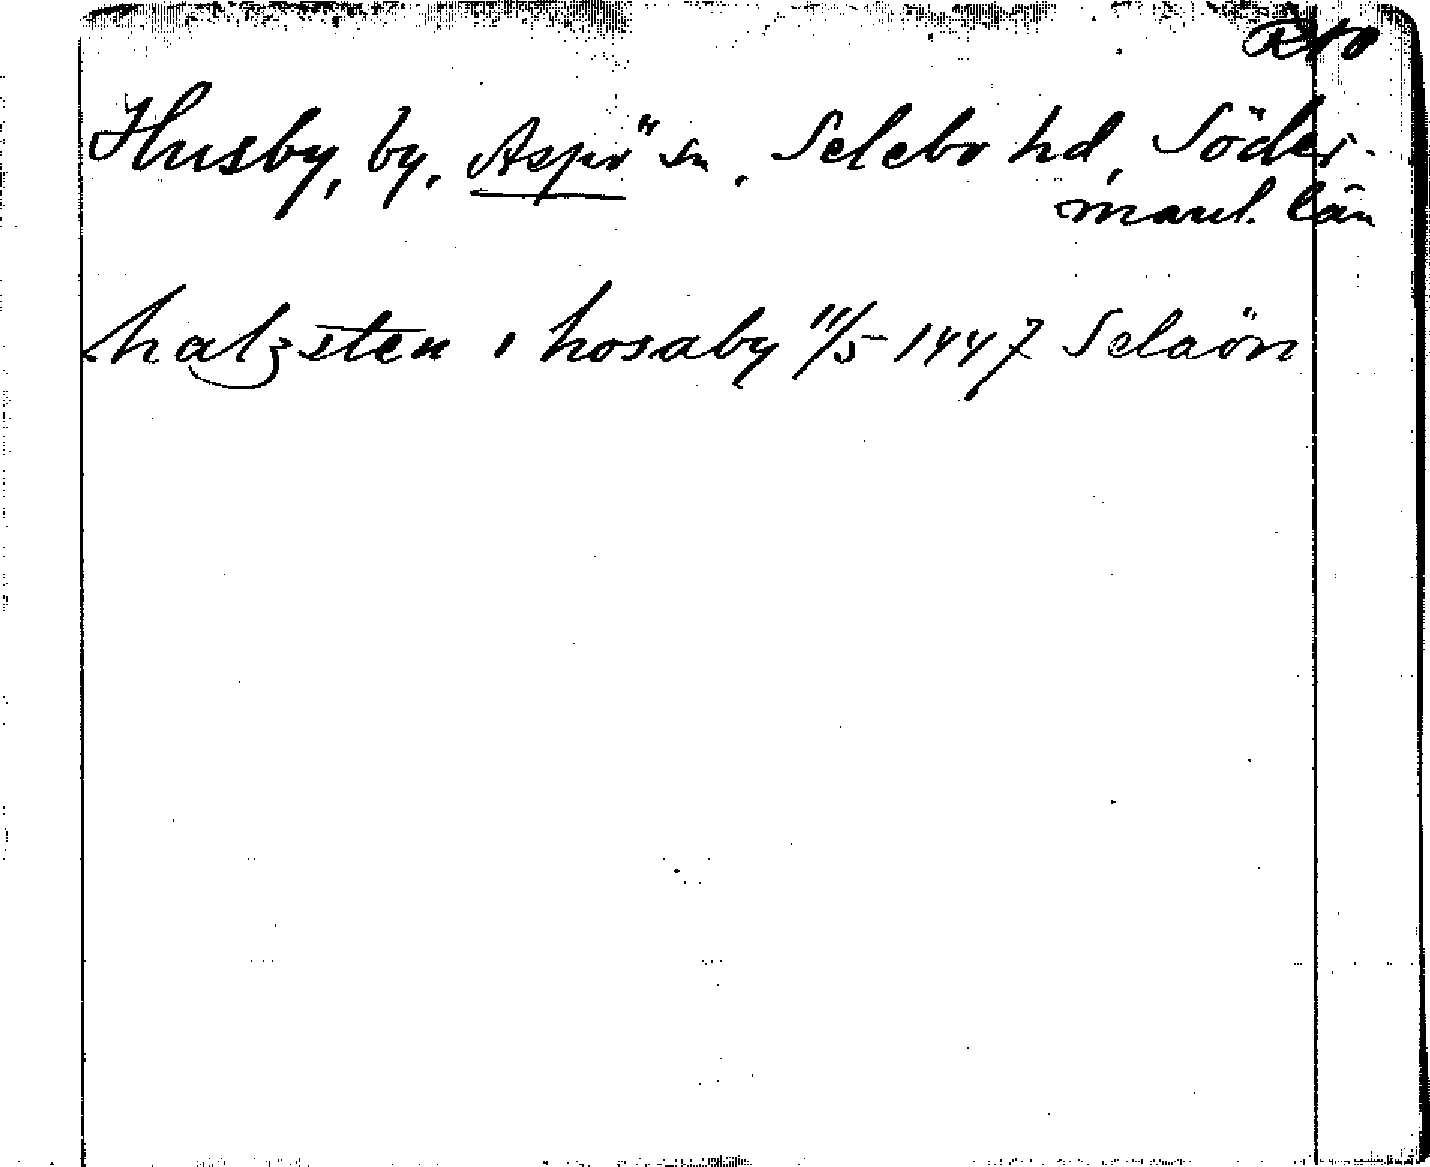 Husby, by, Aspö sn, Selebo hd, Söder-
manl. län
halzsten i hosaby 11/5 1447 Selaön